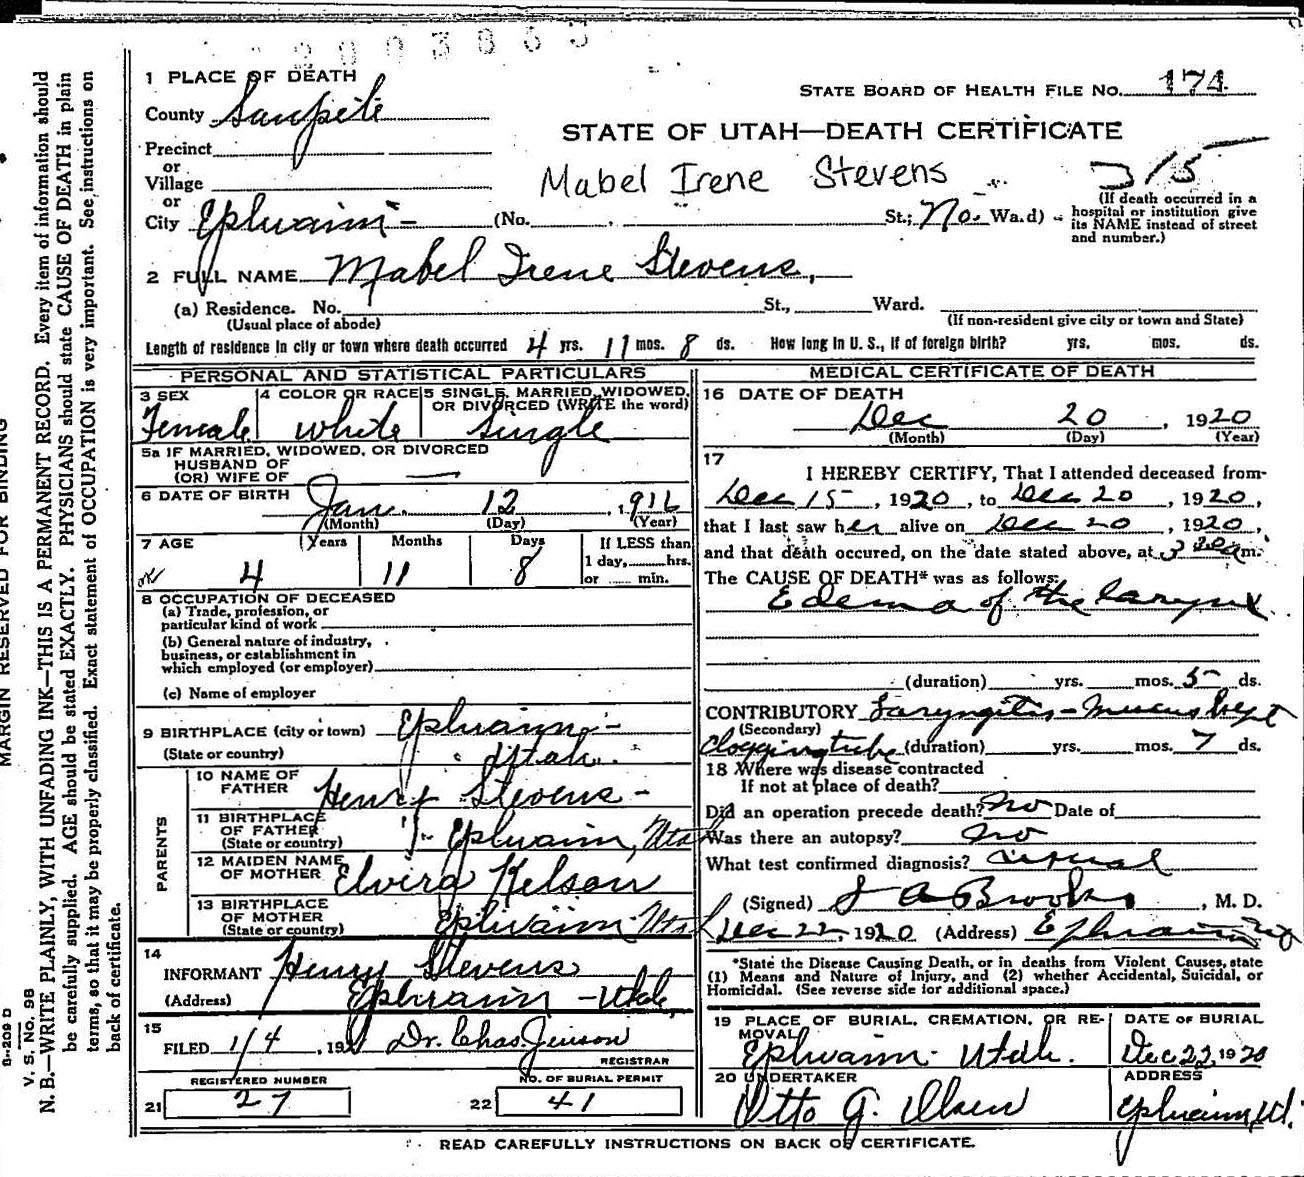 2003863
1 PLACE OF DEATH
STATE BOARD OF HEALTH FILE NO. 174
County Sanpete
STATE OF UTAH—DEATH CERTIFICATE
Precinct
or
Village
Mabel Irene Stevens
315
or
City Ephraim - (No. , St.; No. Wa.d)
(If death occurred in a
hospital or institution give
its NAME instead of street
and number.)
2 FULL NAME Mabel Irene Stevens,
(a) Residence. No. St., Ward.
(Usual place of abode)
(If non-resident give city or town and State)
Length of residence in city or town where death occurred 4 yrs. 11 mos. 8 ds. How long in U. S., if of foreign birth? yrs. mos. ds.
PERSONAL AND STATISTICAL PARTICULARS
3 SEX
Female
4 COLOR OR RACE
White
5 SINGLE, MARRIED, WIDOWED,
OR DIVORCED (WRITE the word)
Single
5a IF MARRIED, WIDOWED, OR DIVORCED
HUSBAND OF
(OR) WIFE OF —
6 DATE OF BIRTH Jan. 12, 1916
(Month) (Day) (Year)
7 AGE Years Months Days If LESS than
1 day, hrs.
or min.
OK 4 11 8
8 OCCUPATION OF DECEASED
(a) Trade, profession, or
particular kind of work
(b) General nature of industry,
business, or establishment in
which employed (or employer)
(c) Name of employer
9 BIRTHPLACE (city or town) Ephraim -
(State or country) Utah.
PARENTS
10 NAME OF
FATHER Henry Stevens -
11 BIRTHPLACE
OF FATHER
(State or country) Ephraim, Utah
12 MAIDEN NAME
OF MOTHER Elvira Nelson
13 BIRTHPLACE
OF MOTHER
(State or country) Ephraim Utah
14
INFORMANT Henry Stevens
(Address) Ephraim - Utah,
15
FILED 1/4, 19 Dr. Chas Jenson
REGISTRAR
REGISTERED NUMBER
21 27
NO. OF BURIAL PERMIT
22 41
MEDICAL CERTIFICATE OF DEATH
16 DATE OF DEATH
Dec 20, 1920
(Month) (Day) (Year)
17
I HEREBY CERTIFY, That I attended deceased from
Dec 15, 1920, to Dec 20, 1920,
that I last saw her alive on Dec 20, 1920,
and that death occured, on the date stated above, at 3 30 a m.
The CAUSE OF DEATH* was as follows:
Edema of the larynx
(duration) yrs. mos. 5 ds.
CONTRIBUTORY Laryngitis - Mucus kept
(Secondary)
clogging tube (duration) yrs. mos. 7 ds.
18 Where was disease contracted
If not at place of death?
Did an operation precede death? No Date of
Was there an autopsy? No
What test confirmed diagnosis?
(Signed) J A Brooks, M. D.
Dec 22, 1920 (Address) Ephraim
*State the Disease Causing Death, or in deaths from Violent Causes, state
(1) Means and Nature of Injury, and (2) whether Accidental, Suicidal, or
Homicidal. (See reverse side for additional space.)
19 PLACE OF BURIAL, CREMATION, OR RE-
MOVAL
Ephraim - Utah.
DATE OF BURIAL
Dec 22, 1920
20 UNDERTAKER
Otto G. Olsen
ADDRESS
Ephraim, Ut.
READ CAREFULLY INSTRUCTIONS ON BACK OF CERTIFICATE.
MARGIN RESERVED FOR BINDING
B-209 D
V. S. No. 98
N. B.—WRITE PLAINLY, WITH UNFADING INK—THIS IS A PERMANENT RECORD. Every item of information should
be carefully supplied. AGE should be stated EXACTLY. PHYSICIANS should state CAUSE OF DEATH in plain
terms, so that it may be properly classified. Exact statement of OCCUPATION is very important. See instructions on
back of certificate.